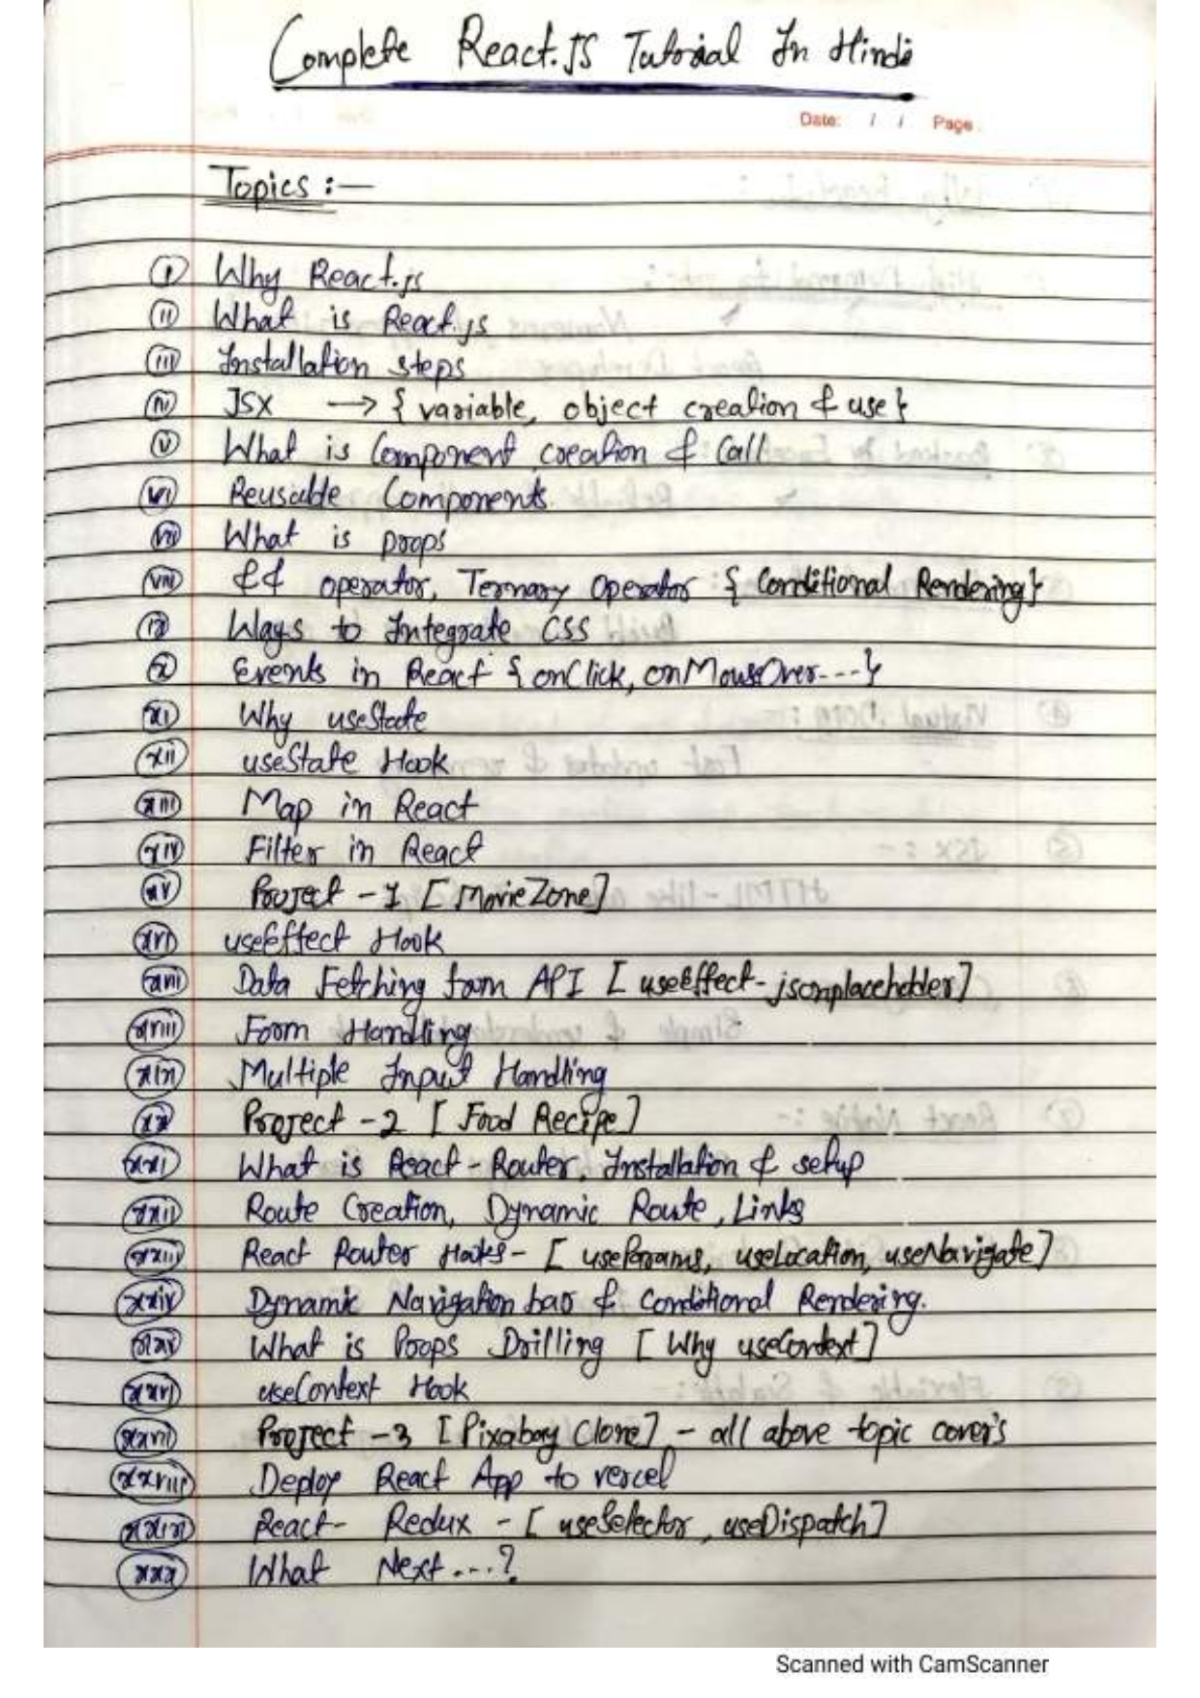 Complete React.JS Tutorial In Hindi
Date: / / Page
Topics :—
(i) Why React.js
(ii) What is React.js
(iii) Installation steps
(iv) JSX → { variable, object creation & use }
(v) What is Component creation & Call
(vi) Reusable Components.
(vii) What is props
(viii) && operator, Ternary Operator { Conditional Rendering }
(ix) Ways to Integrate CSS
(x) Events in React { onClick, onMouseOver---}
(xi) Why useState
(xii) useState Hook
(xiii) Map in React
(xiv) Filter in React
(xv) Project -1 [ MovieZone ]
(xvi) useEffect Hook
(xvii) Data Fetching from API [ useEffect-jsonplaceholder ]
(xviii) Form Handling
(xix) Multiple Input Handling
(xx) Project -2 [ Food Recipe ]
(xxi) What is React-Router, Installation & setup
(xxii) Route Creation, Dynamic Route, Links
(xxiii) React Router - [ useParams, useLocation, useNavigate ]
(xxiv) Dynamic Navigation bar & Conditional Rendering.
(xxv) What is Props Drilling [ Why useContext ]
(xxvi) useContext Hook
(xxvii) Project -3 [ Pixabay Clone ] - all above topic cover's
(xxviii) Deploy React App to vercel
(xxix) React- Redux - [ useSelector, useDispatch ]
(xxx) What Next...?
Scanned with CamScanner